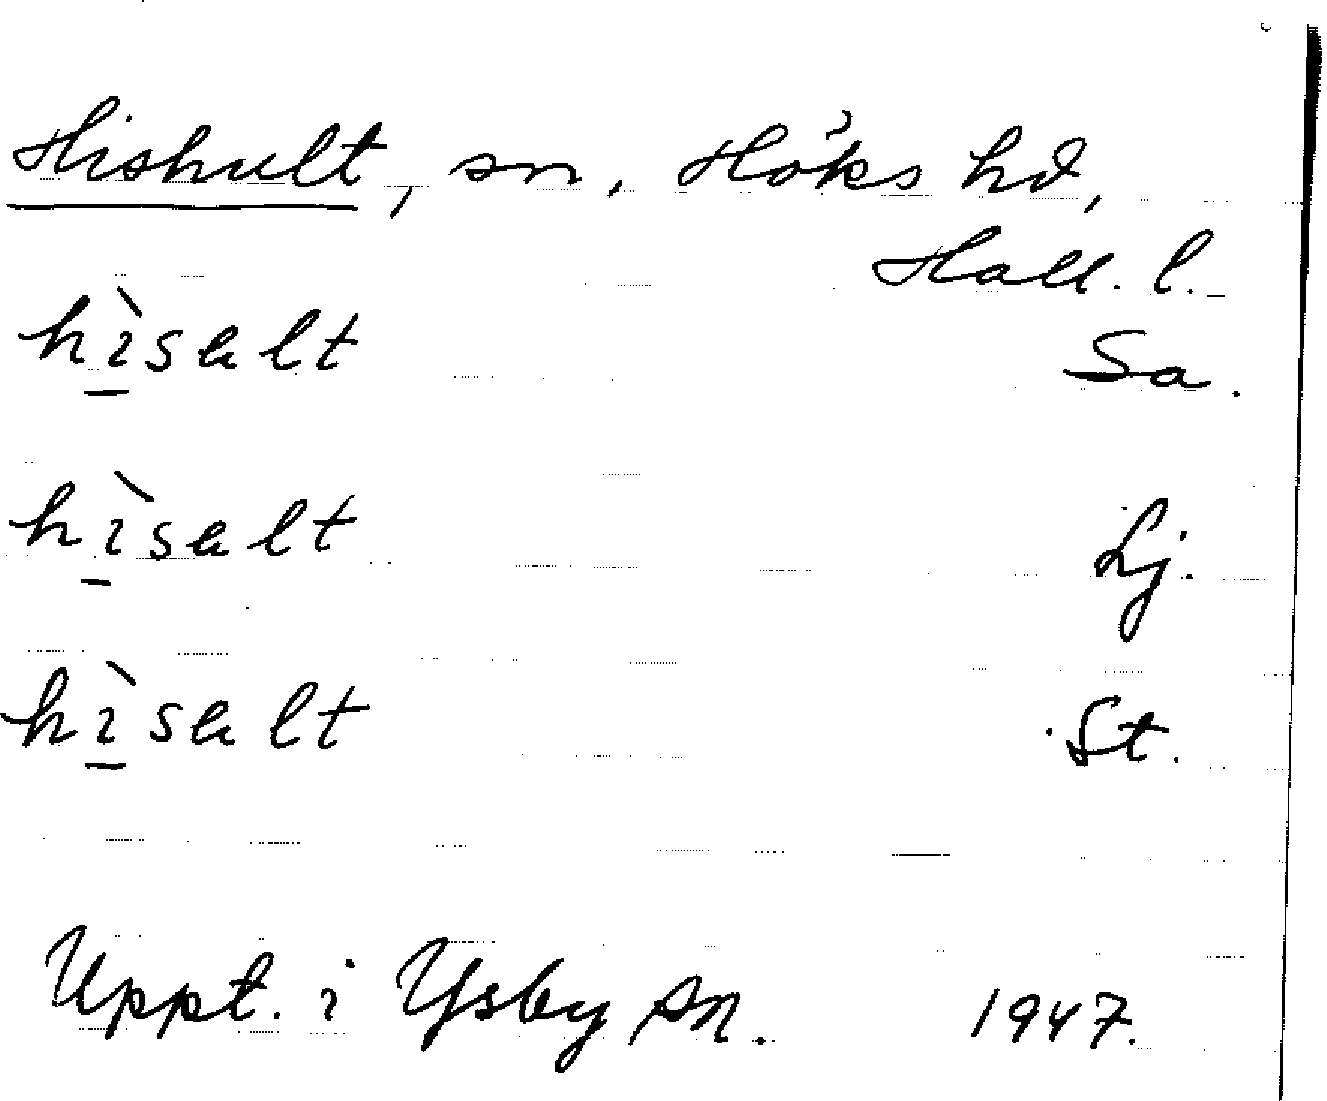 Hishult, sn, Höks hd,
Hall. l.
hìsalt Sa.
hìsalt Lj.
hìsalt St.
Uppt. i Ysby sn. 1947.